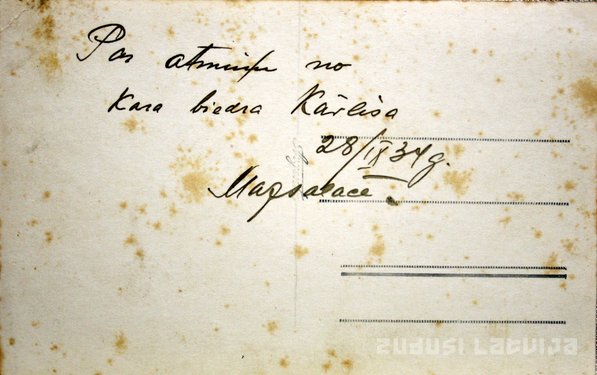 Par atmiņu no
Kara biedra Kārļisa
28/IX 34 g.
Mazsalacē.
zudusi latvija